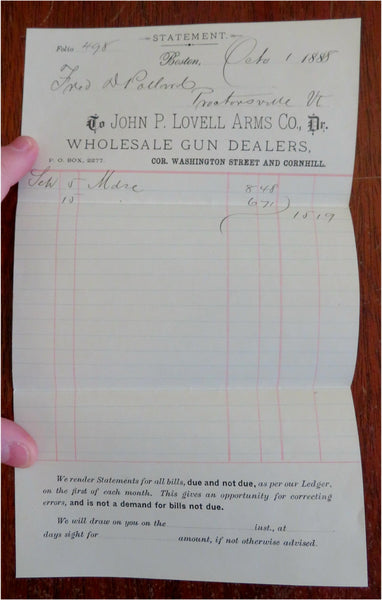 STATEMENT.
Folio 498 Boston, Octo 1 1888
Fred D Pollard
Proctorsville Vt
To JOHN P. LOVELL ARMS CO., Dr.
WHOLESALE GUN DEALERS,
P. O. BOX, 2277. COR. WASHINGTON STREET AND CORNHILL.
5 Mdse 8 48
15 6 71
15 19
We render Statements for all bills, due and not due, as per our Ledger,
on the first of each month. This gives an opportunity for correcting
errors, and is not a demand for bills not due.
We will draw on you on the inst., at
days sight for amount, if not otherwise advised.